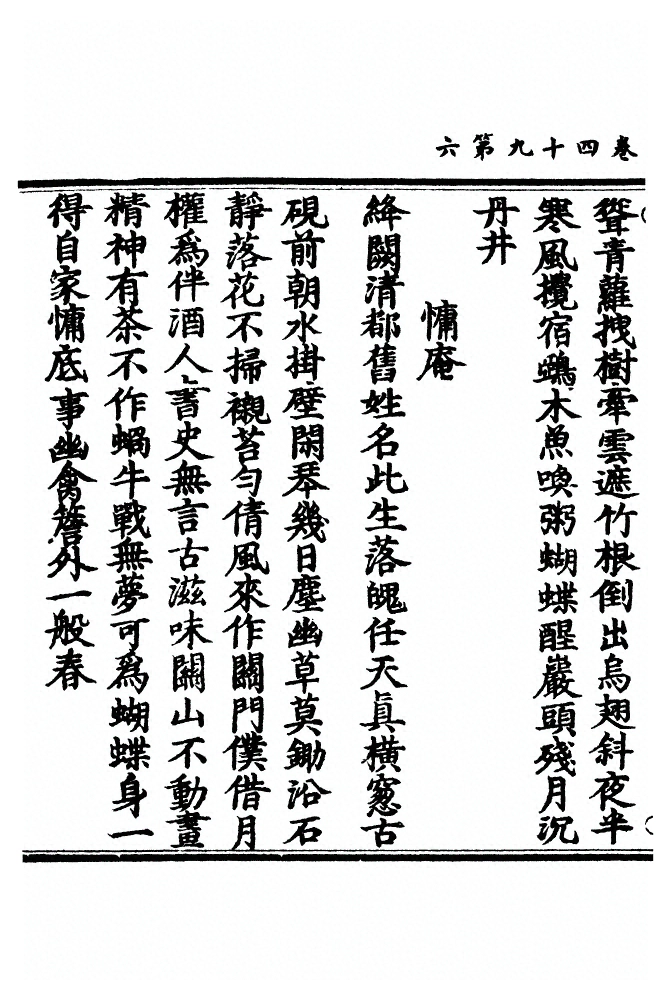 卷四十九第六
聳青蘿拽樹牽雲遮竹根倒出烏翅斜夜半
寒風攪宿鵶木魚喚粥蝴蝶醒巖頭殘月沉
丹井
慵庵
絳闕清都舊姓名此生落魄任天真橫窻古
硯前朝水掛壁閑琴幾日塵幽草莫鋤沿石
靜落花不掃襯苔勻倩風來作關門僕借月
權為伴酒人書史無言古滋味關山不動畫
精神有茶不作蝸牛戰無夢可為蝴蝶身一
得自家慵底事幽禽簷外一般春